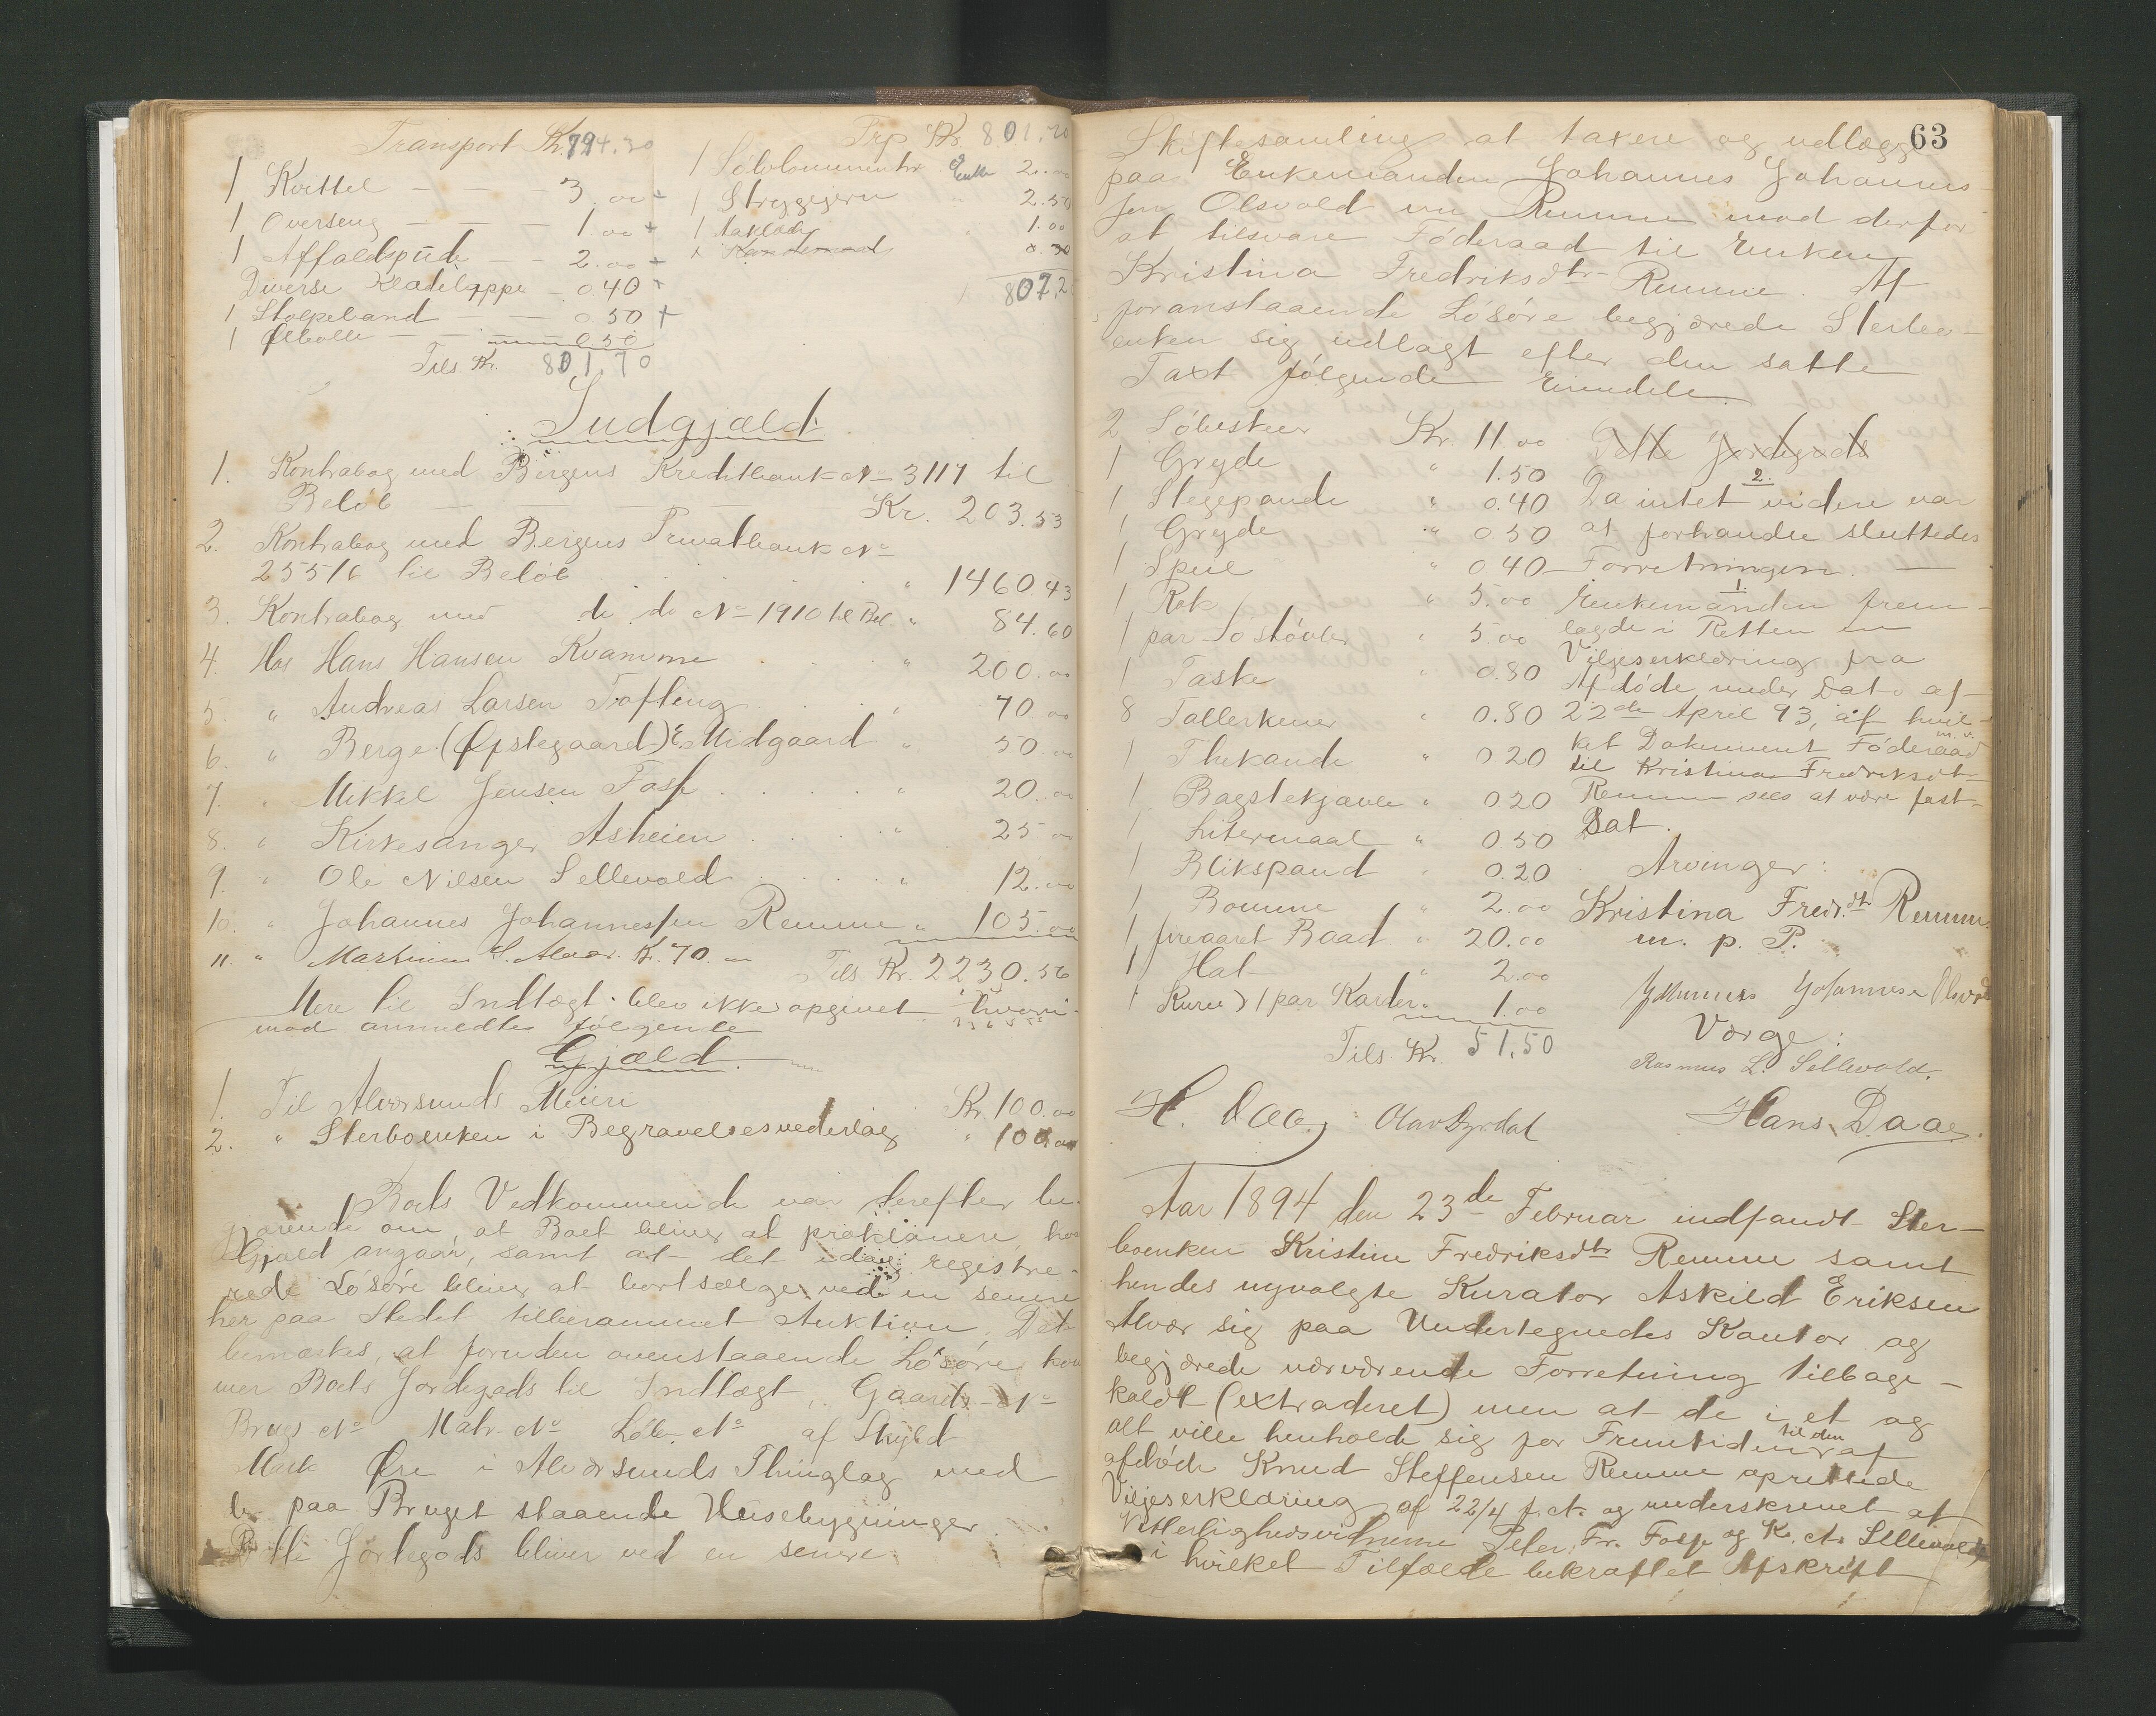 Transport Kr. 794.30
1 Kvittel — — — 3.00 +
1 Overseng — — — 1.00 +
1 Affaldspude — — 2.00 +
Diverse Kladelapper — 0.40 +
1 Stolpeband — — 0.50 +
1 Ølbolle — — 0.50
Tils Kr. 801.70
Trp Kr. 801.70
1 Sølvlommeuhr Enke 2.00
1 Strygejern " 2.50
1 " 1.00
807.2
Indgjæld.
1. Kontrabog med Bergens Kreditbank No 3117 til
Beløb — — — Kr. 203.53
2. Kontrabog med Bergens Privatbank No
25516 til Beløb . . . " 1460.43
3. Kontrabog med do do No 1910 til Bel. " 84.60
4. Hos Hans Hansen Kvamme . . . " 200.00
5. " Andreas Larsen Tofting . . . " 70.00
6. " Berge (Øpstegaard) E. Midgaard " 50.00
7. " Mikkel Jensen Fosse . . . " 20.00
8. " Kirkesanger Asheien . . . " 25.00
9. " Ole Nilsen Sellevold . . . " 12.00
10. " Johannes Johannessen Remme " 105.00
11. " Martinus S. Alvær. K. 70.00
Tils Kr. 2230.56
Mere til Indtægt blev ikke opgivet hvori-
mod anmeldtes følgende
Gjæld.
1. Til Alversunds Meieri Kr. 100.00
2. " Sterboenken i Begravelsesvederlag " 100.00
Boets Vedkommende var derefter be-
gjærende om, at Boet bliver at proklamere, hva
Gjæld angaar, samt at det idag registre-
rede Løsøre bliver at bortsælges ved en senere
her paa Stedet tilberammet Auktion. Det
bemærkes, at foruden ovenstaaende Løsøre kom
mer Boets Jordegods til Indtægt, Gaards-No
Brugs-No Matr.-No Løbe-No af Skyld
Mark Øre i Alversunds Thinglag med
de paa Bruget staaende Husebygninger.
Dette Jordegods bliver ved en senere
63
Skiftesamling at taxere og udlægge
paa Enkemanden Johannes Johannes-
sen Olsvold Remme mod derfor
at tilsvare Føderaad til Enken
Kristina Fredriksdtr Remme. Af
foranstaaende Løsøre begjærede Sterbo-
enken sig udlagt efter den satte
Taxt følgende Eiendele
2 Sølvskeer Kr. 11.00
1 Gryde " 1.50
1 Stegepande " 0.40
1 Gryde " 0.50
1 Speil " 0.40
1 Rok " 5.00
1 par Søstøvler " 5.00
1 Taske " 0.80
8 Tallerkener " 0.80
1 Thekande " 0.20
1 Bagstekjævle " 0.20
1 Litermaal " 0.50
1 Blikspand " 0.20
1 Bomme " 2.00
1 firaaret Baad " 20.00
1 Hat " 2.00
1 Kurv & 1 par Karder " 1.00
Tils. Kr. 51.50
Dette Jordegods
2.
Da intet videre var
at forhandle sluttedes
Forretningen. —
1.
Enkemanden frem-
lagde i Retten en
Viljeserklæring fra
Afdøde under Dato af
22de April 93, af hvil-
ket Dokument Føderaad m. v.
til Kristina Fredriksdtr
Remme sees at være fast-
sat.
Arvinger:
Kristina Fredr.dtr Remme
m. p. P.
Johannes Johannesen Olsvold
Værge:
Rasmus L. Sellevold.
H. Daae Olav Dyrdal Hans Daae.
Aar 1894 den 23de Februar indfandt Ster-
boenken Kristine Fredriksdtr Remme samt
hendes nyvalgte Kurator Askild Eriksen
Alvær sig paa Undertegnedes Kontor og
begjærede nærværende Forretning tilbage-
kaldt (extraderet) men at de i et og
alt ville henholde sig for Fremtiden til den af
afdøde Knud Steffensen Remme oprettede
Viljeserklæring af 22/4 f. A. og underskrevet af
Vitterlighedsvidnerne Peder Fr. Fosse og K. A. Sellevold
i hvilket Tilfælde bekræftet Afskrift